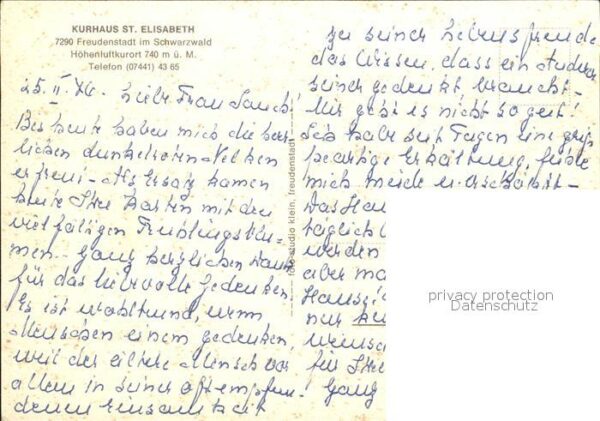 KURHAUS ST. ELISABETH
7290 Freudenstadt im Schwarzwald
Höhenluftkurort 740 m ü. M.
Telefon (07441) 43 65
25. II. Liebe Frau
Bis heute haben mich die herr-
lichen dunkelroten Nelken
erfreut. Als Ersatz kamen
heute Ihre Karten mit den
vielfältigen Frühlingsblu-
men. Ganz herzlichen Dank
für das liebevolle Gedenken.
Es ist wohltuend, wenn
Menschen einem gedenken,
weil der ältere Mensch vor
allem in seiner oft empfun-
denen Einsamkeit
fotostudio klein, freudenstadt
zu seiner Lebensfreude
das Wissen, dass ein anderer
seiner gedenkt, braucht.
Mir geht es nicht so gut!
Ich habe seit Tagen eine grip-
peartige Erkältung, fühle
mich müde u. erschöpft.
Das Hau
täglich
werden
aber ma
Hausgi
nur
wünsche
für Ihre
Ganz
privacy protection
Datenschutz